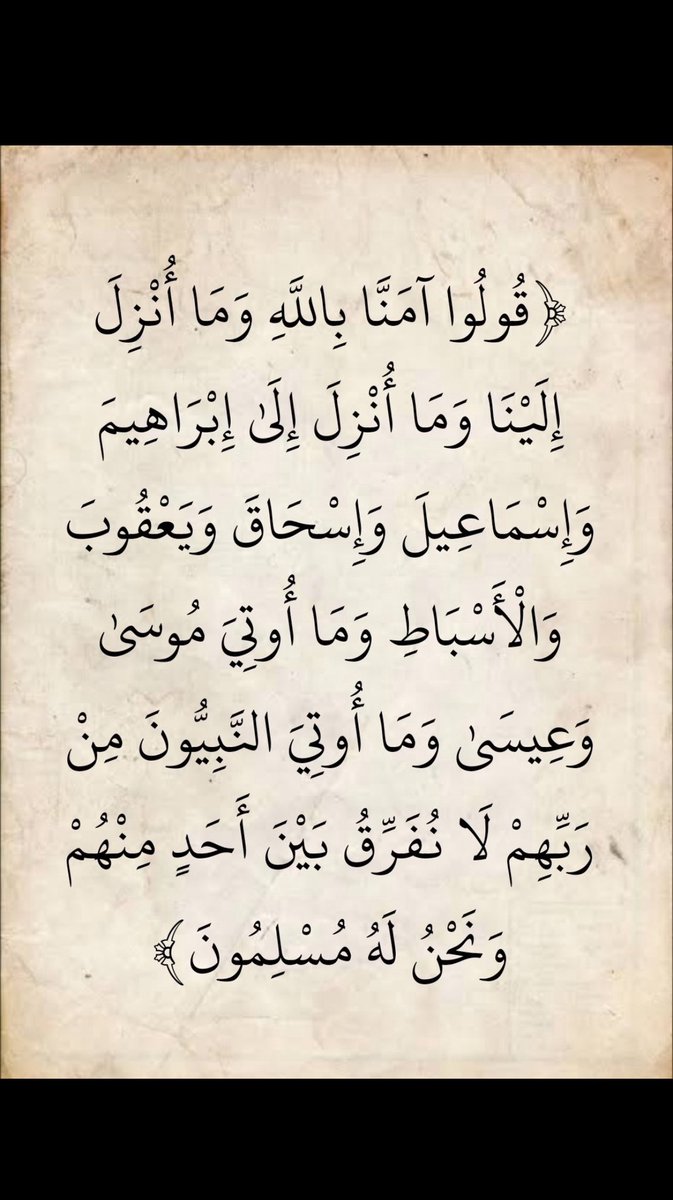 ﴿قُولُوا آمَنَّا بِاللَّهِ وَمَا أُنْزِلَ
إِلَيْنَا وَمَا أُنْزِلَ إِلَىٰ إِبْرَاهِيمَ
وَإِسْمَاعِيلَ وَإِسْحَاقَ وَيَعْقُوبَ
وَالْأَسْبَاطِ وَمَا أُوتِيَ مُوسَىٰ
وَعِيسَىٰ وَمَا أُوتِيَ النَّبِيُّونَ مِنْ
رَبِّهِمْ لَا نُفَرِّقُ بَيْنَ أَحَدٍ مِنْهُمْ
وَنَحْنُ لَهُ مُسْلِمُونَ﴾